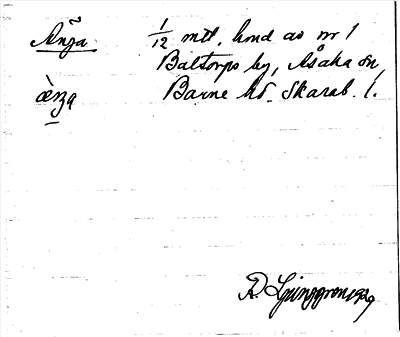 Änga 1/12 mtl, hmd av nr 1
Baltorps by, Åsaka sn,
æ̀nga Barne hd. Skarab. l.
R. Ljunggren 1929